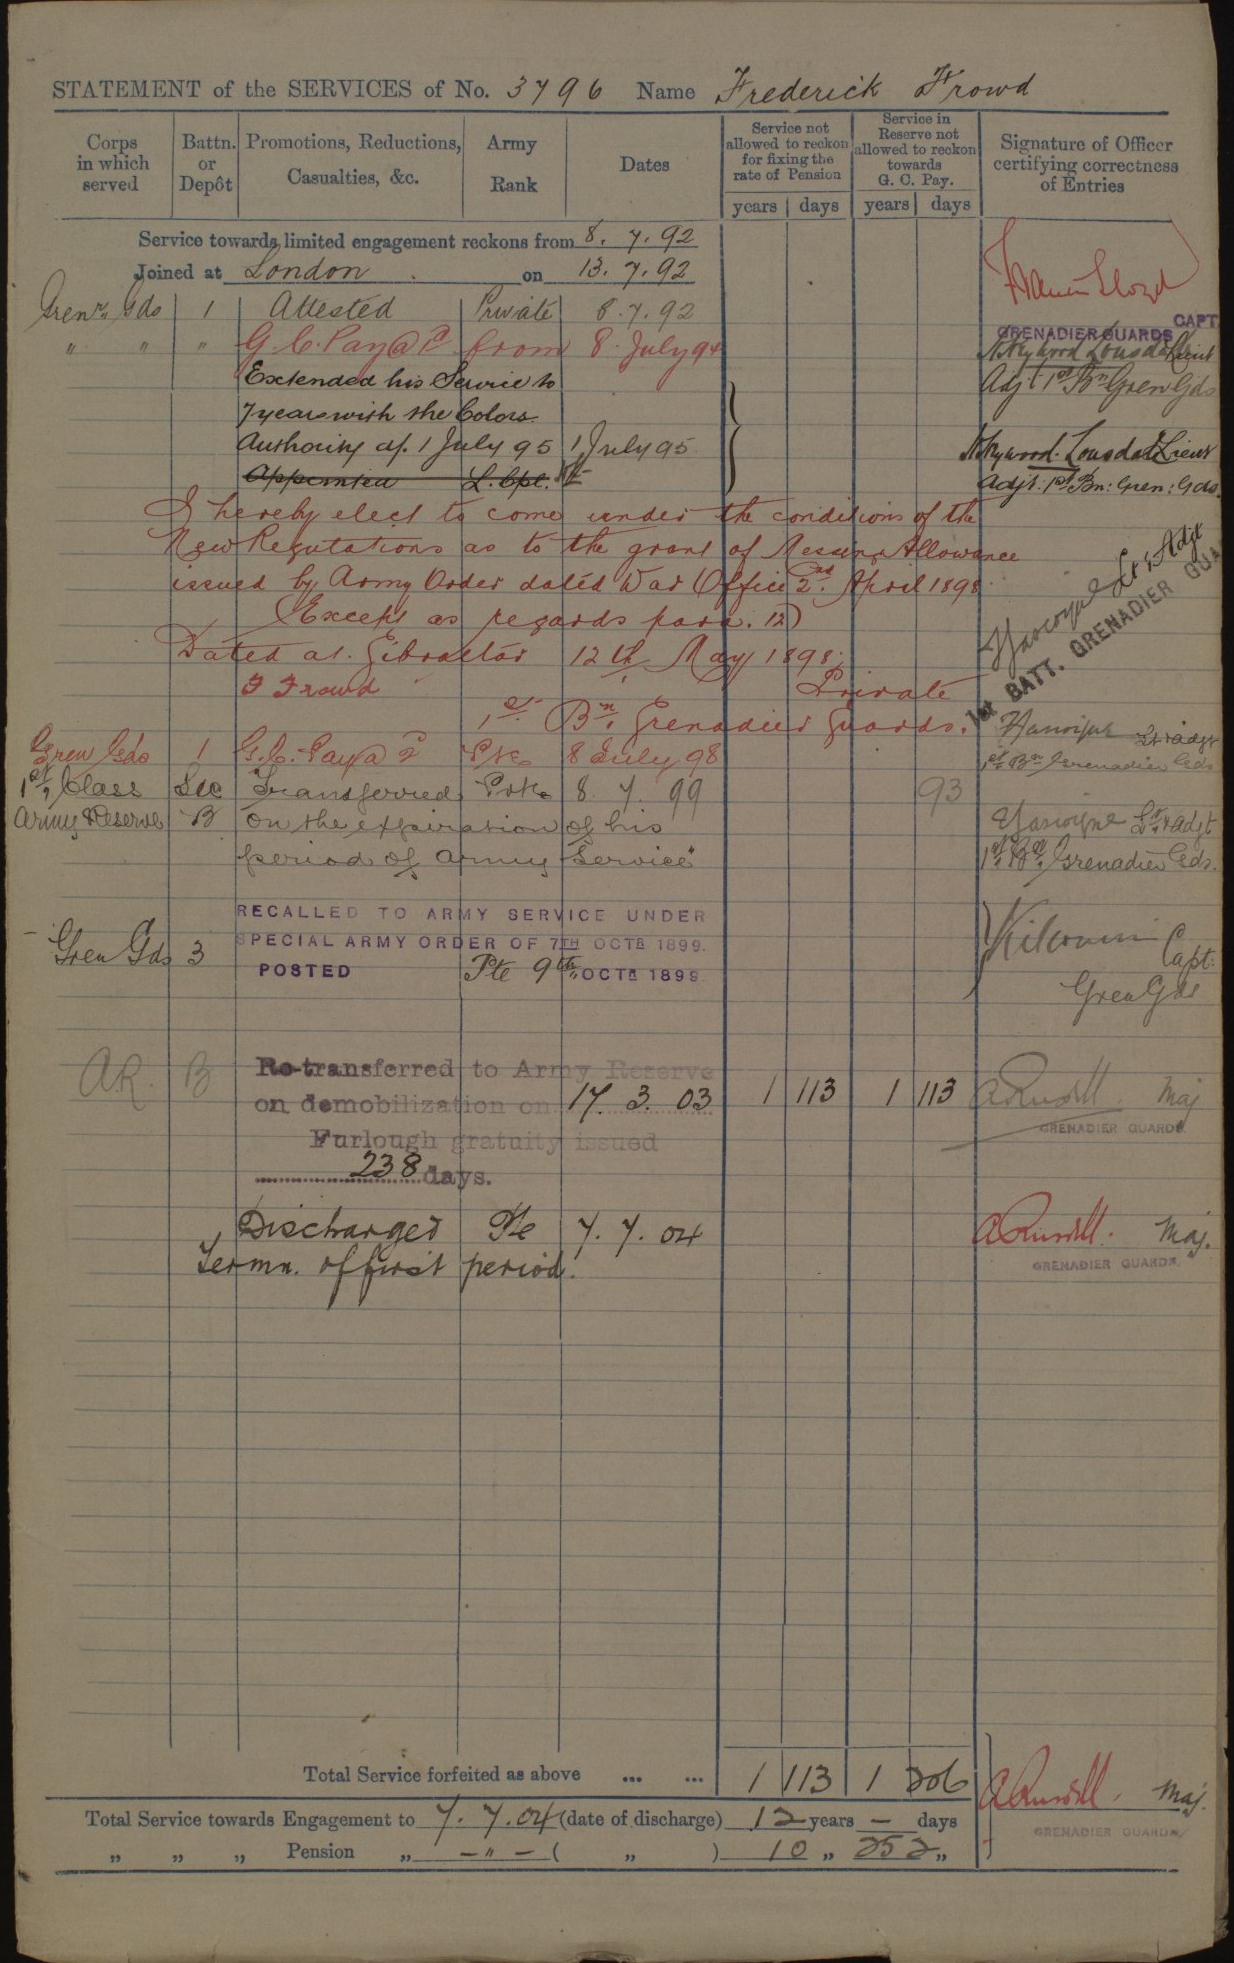 STATEMENT of the SERVICES of No. 3796 Name Frederick Frowd
Corps in which served
Battn. or Depôt
Promotions, Reductions, Casualties, &c.
Army Rank
Dates
Service not allowed to reckon for fixing the rate of Pension
years days
Service in Reserve not allowed to reckon towards G. C. Pay.
years days
Signature of Officer certifying correctness of Entries
Service towards limited engagement reckons from 8. 7. 92
Joined at London on 13. 7. 92
Lloyd
CAPT
GRENADIER GUARDS
Grenr. Gds 1 Attested Private 8. 7. 92
" " " G. C. Pay @ 1d from 8 July 94
Heywood Lonsdale Lieut
Adjt 1st Bn Gren Gds
Extended his Service to
7 years with the Colors.
Authority df. 1 July 95 1 July 95
Heywood Lonsdale Lieut
Appointed L. Cpl.
Adjt. 1st Bn: Gren: Gds.
I hereby elect to come under the conditions of the
New Regulations as to the grant of Messing Allowance
issued by Army Order dated War Office 2nd. April 1898
(Except as regards para. 12)
Dated at Gibraltar 12th May 1898.
F Frowd Private
1st Bn. Grenadier Guards.
Gascoigne Lt & Adjt
1st BATT. GRENADIER GUA
Gren Gds 1 G. C. Pay @ 2d Pte 8 July 98
Gascoigne Lt & Adjt
1st Bn Grenadier Gds
1st Class Sec Transferred Pte 8. 7. 99 93
Army Reserve B on the expiration of his
period of Army Service"
Gascoigne Lt. & Adjt
1st Bn. Grenadier Gds.
RECALLED TO ARMY SERVICE UNDER
SPECIAL ARMY ORDER OF 7TH OCTR 1899.
Gren Gds 3 POSTED Pte 9th OCTR 1899
Capt.
Gren Gds
A.R. B Re-transferred to Army Reserve
on demobilization on 17. 3. 03 1 113 1 113
Maj
GRENADIER GUARDS.
Furlough gratuity issued
238 days.
Discharged Pte 7. 7. 04
Termn. of first period.
Maj.
GRENADIER GUARDS.
Total Service forfeited as above ... ... 1 113 1 206
Total Service towards Engagement to 7. 7. 04 (date of discharge) 12 years — days
„ „ „ Pension „ — " — ( „ ) 10 „ 252 „
Maj.
GRENADIER GUARDS